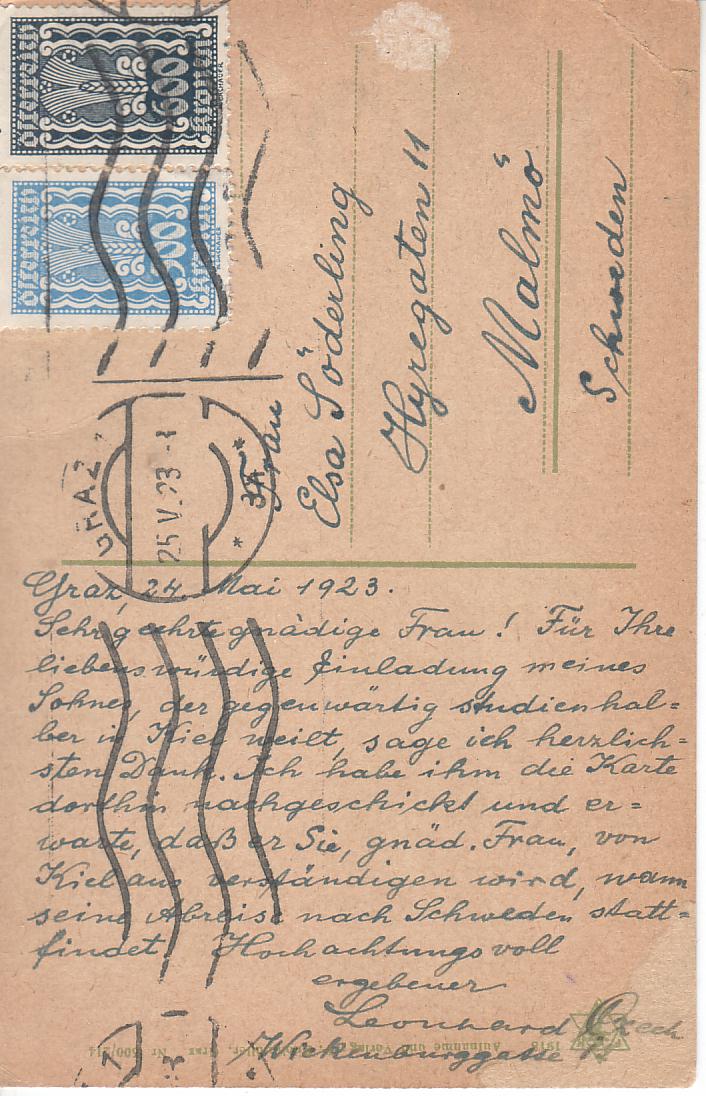 Österreich
600
Kronen
Österreich
500
Kronen
GRAZ
25.V.23
* 3A *
Frau
Elsa Söderling
Hyregaten 11
Malmö
Schweden
Graz, 24. Mai 1923.
Sehr geehrte gnädige Frau! Für Ihre
liebenswürdige Einladung meines
Sohnes, der gegenwärtig studienhal=
ber in Kiel weilt, sage ich herzlich=
sten Dank. Ich habe ihm die Karte
dorthin nachgeschickt und er=
warte, daß er Sie, gnäd. Frau, von
Kiel aus verständigen wird, wann
seine Abreise nach Schweden statt=
findet. Hochachtungsvoll
ergebener
Leonhard Czech
Wickenburggasse
Aufnahme und Verlag Graz 1918 Nr. 500/214